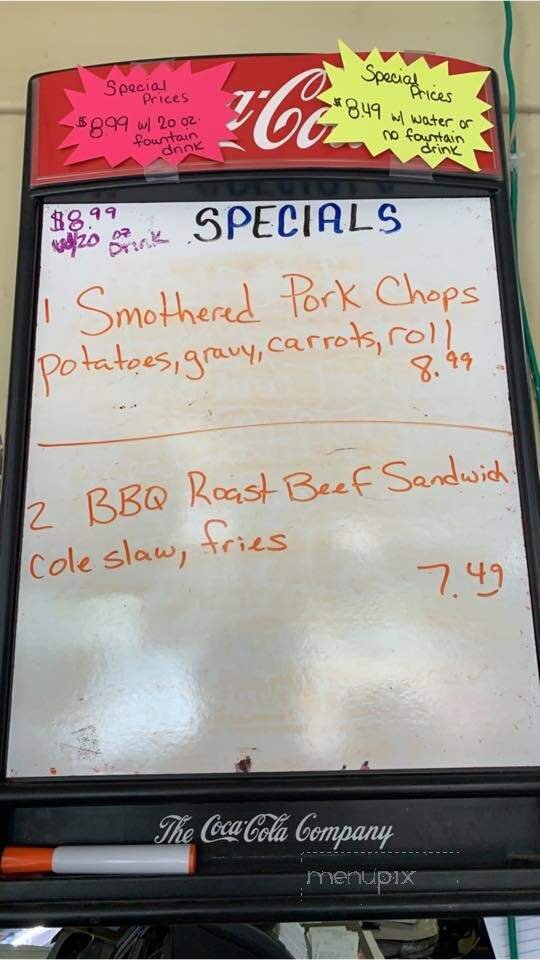 Special
Prices
$8.99 w/ 20 oz.
fountain
drink
Special
Prices
$8.49 w/ water or
no fountain
drink
$8.99
w/20 oz
Drink
SPECIALS
1 Smothered Pork Chops
potatoes, gravy, carrots, roll
8.99
2 BBQ Roast Beef Sandwich
Cole slaw, fries
7.49
The Coca-Cola Company
menupix